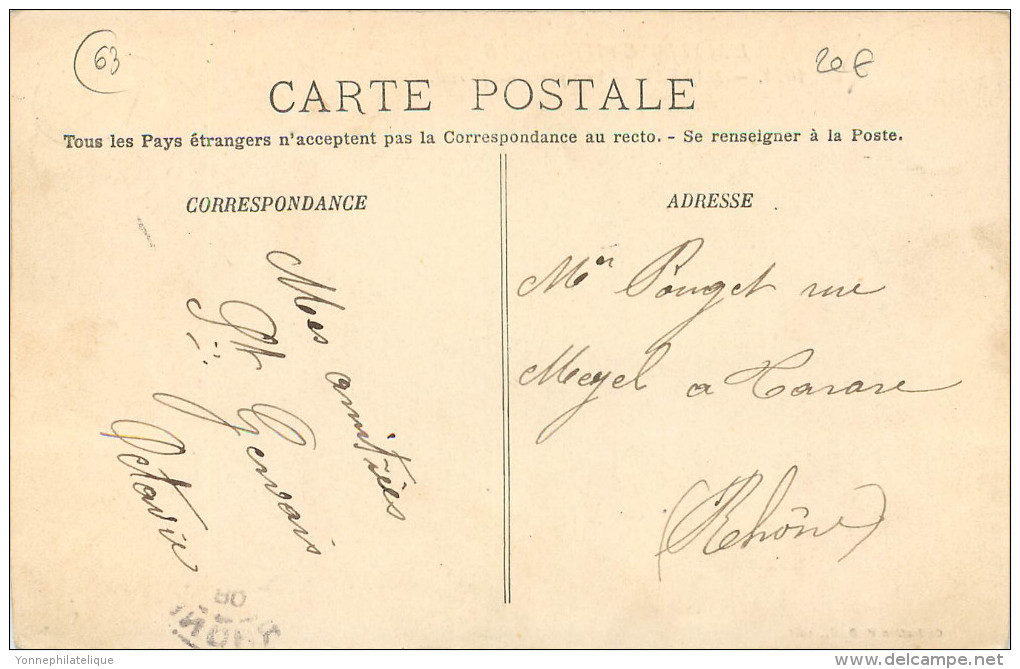 63
20€
CARTE POSTALE
Tous les Pays étrangers n'acceptent pas la Correspondance au recto. - Se renseigner à la Poste.
CORRESPONDANCE
Mes amitiés
St Gervais
Octavie
ADRESSE
Pouget rue
Meyel a Tarare
(Rhône)
08
Yonnephilatelique
delcampe.net